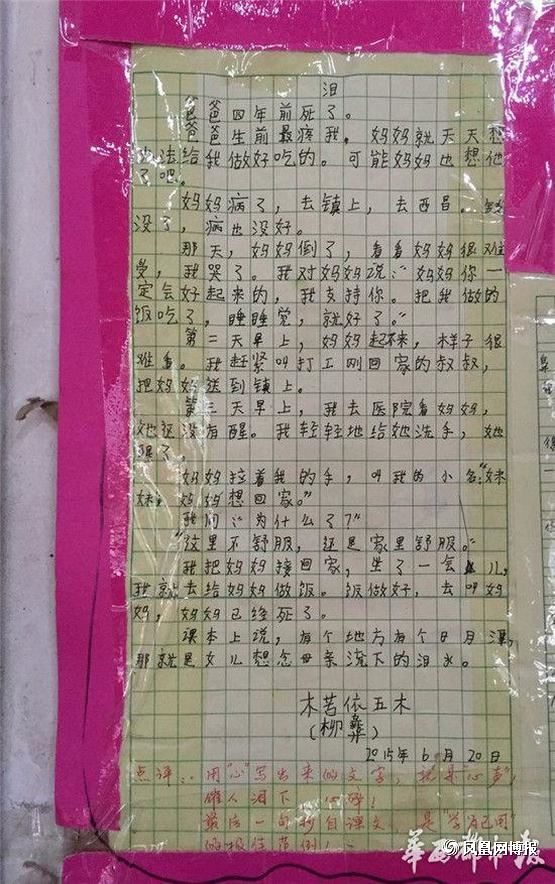 泪
爸爸四年前死了。
爸爸生前最疼我，妈妈就天天想
办法给我做好吃的。可能妈妈也想他
了吧。
妈妈病了，去镇上，去西昌。钱
没了，病也没好。
那天，妈妈倒了，看看妈妈很难
受，我哭了。我对妈妈说：“妈妈你一
定会好起来的，我支持你。把我做的
饭吃了，睡睡觉，就好了。”
第二天早上，妈妈起不来，样子很
难看。我赶紧叫打工刚回家的叔叔，
把妈妈送到镇上。
第三天早上，我去医院看妈妈，
她还没有醒。我轻轻地给她洗手，她
醒了。
妈妈拉着我的手，叫我的小名：“妹
妹，妈妈想回家。”
我问：“为什么了？”
“这里不舒服，还是家里舒服。”
我把妈妈接回家，坐了一会儿，
我就去给妈妈做饭。饭做好，去叫妈
妈，妈妈已经死了。
课本上说，有个地方有个日月潭，
那就是女儿想念母亲流下的泪水。
木苦依五木
（柳彝）
2015年6月20日
点评：用“心”写出来的文字，就是“心声”，
催人泪下，心碎！
最后一句抄自课文，是“学为己用”
的极佳范例！
华西都市报
凤凰网博报